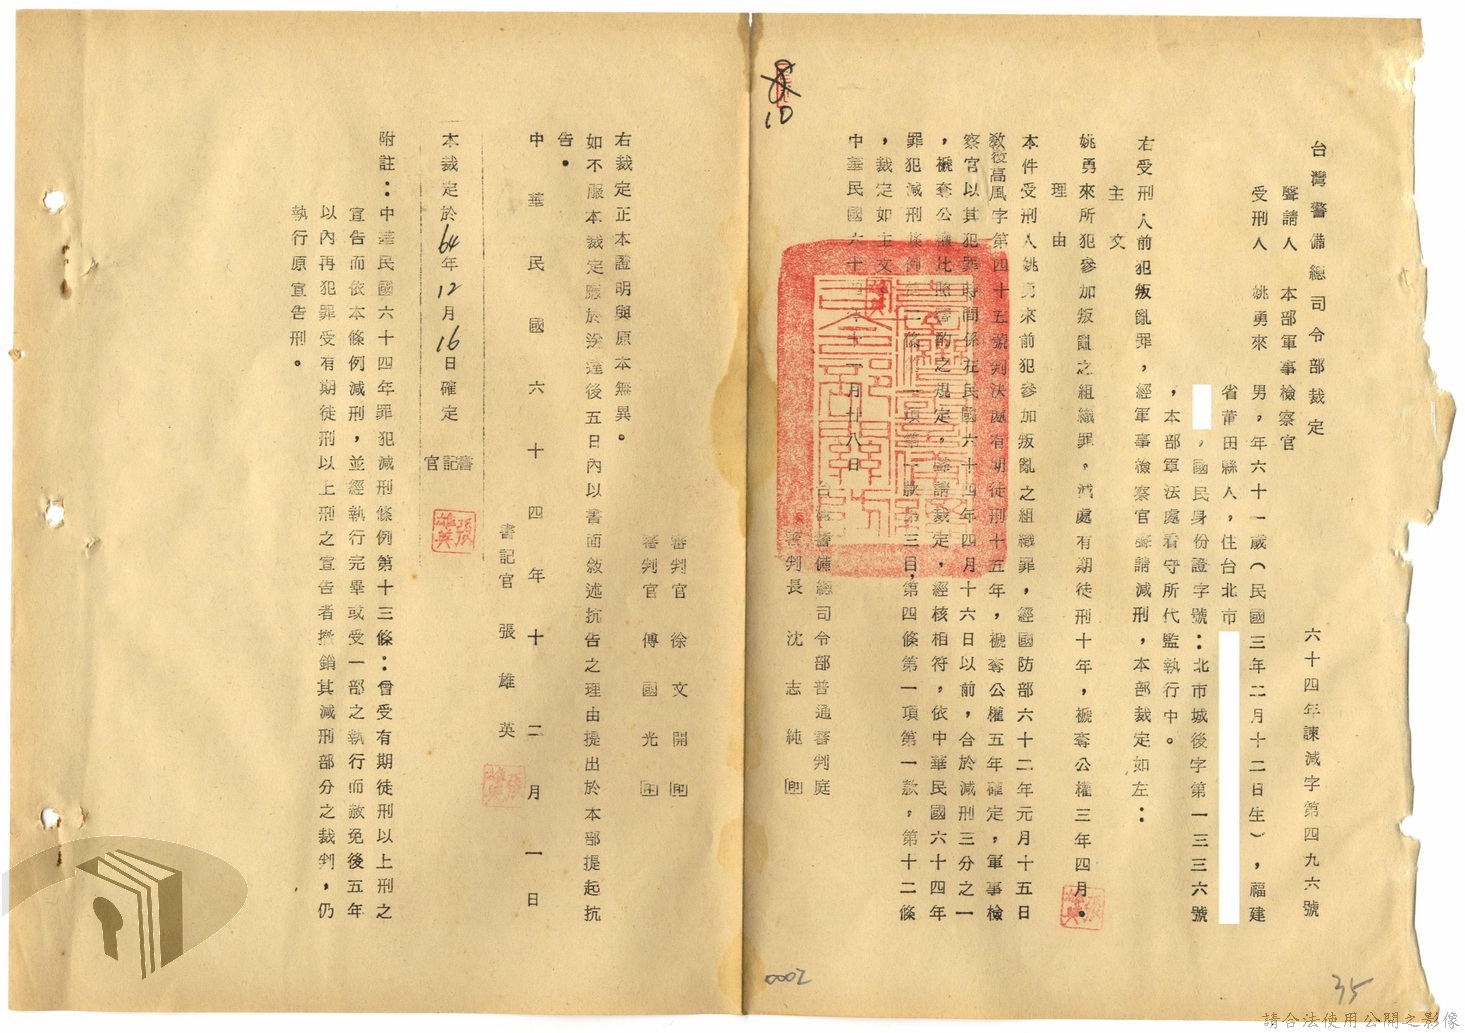 台灣警備總司令部裁定
六十四年諫減字第四九六號
聲請人 本部軍事檢察官
受刑人 姚勇來 男，年六十一歲（民國三年二月十二日生），福建
省莆田縣人，住台北市
，國民身份證字號：北市城後字第一三三六號
，本部軍法處看守所代監執行中。
右受刑人前犯叛亂罪，經軍事檢察官聲請減刑，本部裁定如左：
主文
姚勇來所犯參加叛亂之組織罪，減處有期徒刑十年，褫奪公權三年四月。
理由
本件受刑人姚勇來前犯參加叛亂之組織罪，經國防部六十二年元月十五日
字第四十五號判決處有期徒刑十五年，褫奪公權五年確定，軍事檢
察官以其犯罪時間係在民國六十四年四月十六日以前，合於減刑三分之一
，褫奪公權比照審酌之規定，聲請裁定，經核相符，依中華民國六十四年
罪犯減刑條例第二條第一項第一款第三目，第四條第一項第一款，第十二條
，裁定如主文。
中華民國六十四年十一月廿八日
台灣警備總司令部普通審判庭
審判長 沈志純 印
審判官 徐文開 印
審判官 傅國光 印
右裁定正本證明與原本無異。
如不服本裁定應於送達後五日內以書面敘述抗告之理由提出於本部提起抗
告。
書記官 張雄英
中華民國六十四年十二月一日
本裁定於64年12月16日確定
書記官
張雄英
附註：中華民國六十四年罪犯減刑條例第十三條：曾受有期徒刑以上刑之
宣告而依本條例減刑，並經執行完畢或受一部之執行而赦免後五年
以內再犯罪受有期徒刑以上刑之宣告者撤銷其減刑部分之裁判，仍
執行原宣告刑。
10
0002
35
請合法使用公開之影像